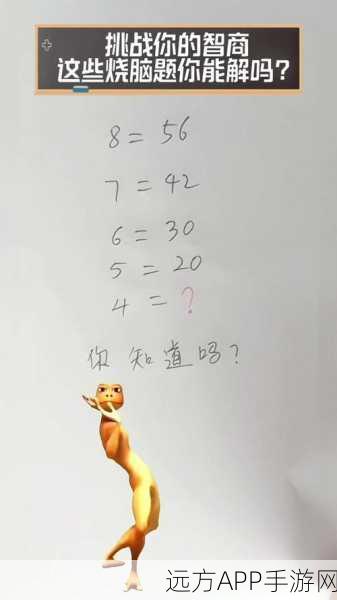 挑战你的智商
这些烧脑题你能解吗?
8 = 56
7 = 42
6 = 30
5 = 20
4 = ?
你 知道吗?
远方APP手游网